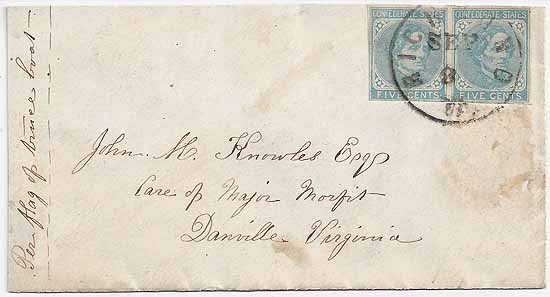 CONFEDERATE STATES CONFEDERATE STATES
FIVE CENTS FIVE CENTS
RICHMOND
SEP
8
Per flag of truce boat
John M. Knowles Esqr
Care of Major Morfit
Danville Virginia